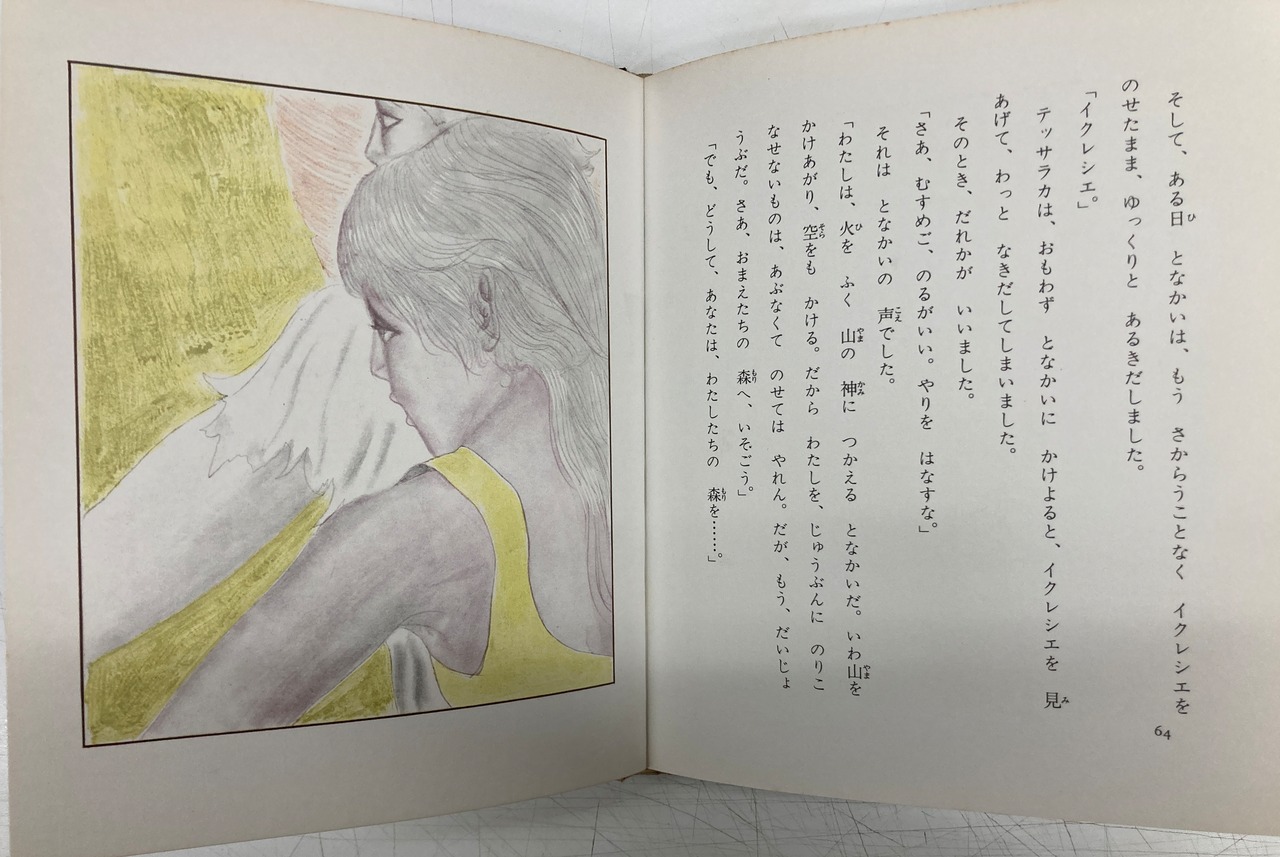 そして、ある日 となかいは、もう さからうことなく イクレシエを
のせたまま、ゆっくりと あるきだしました。
「イクレシエ。」
テッサラカは、おもわず となかいに かけよると、イクレシエを 見
あげて、わっと なきだしてしまいました。
そのとき、だれかが いいました。
「さあ、むすめご、のるがいい。やりを はなすな。」
それは となかいの 声でした。
「わたしは、火を ふく 山の 神に つかえる となかいだ。いわ山を
かけあがり、空をも かける。だから わたしを、じゅうぶんに のりこ
なせないものは、あぶなくて のせては やれん。だが、もう、だいじょ
うぶだ。さあ、おまえたちの 森へ、いそごう。」
「でも、どうして、あなたは、わたしたちの 森を……。」
64